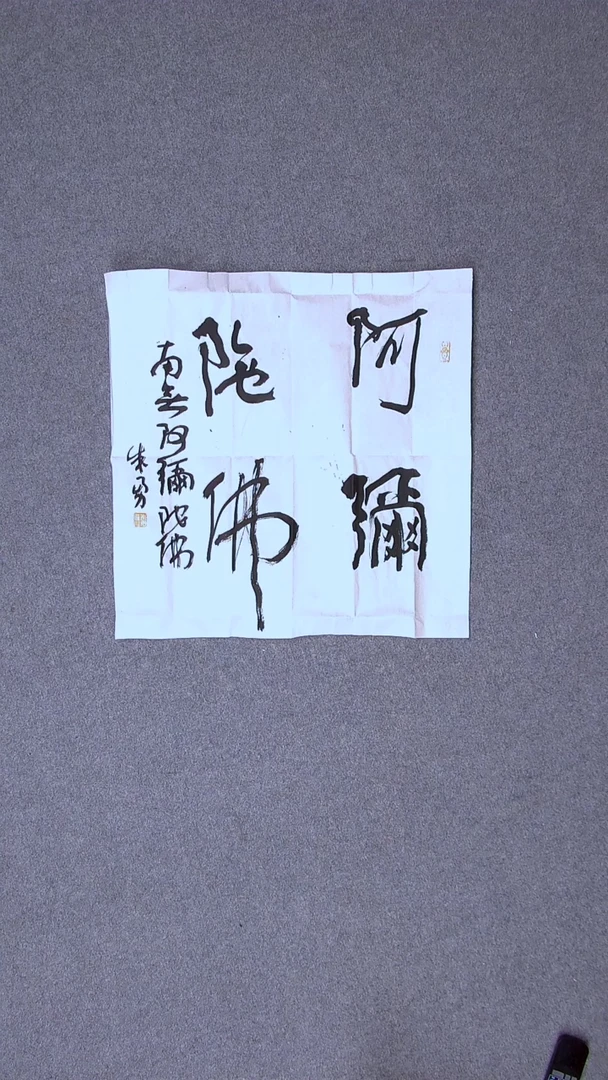 阿彌
陀佛
南无阿彌陀佛
朱勇